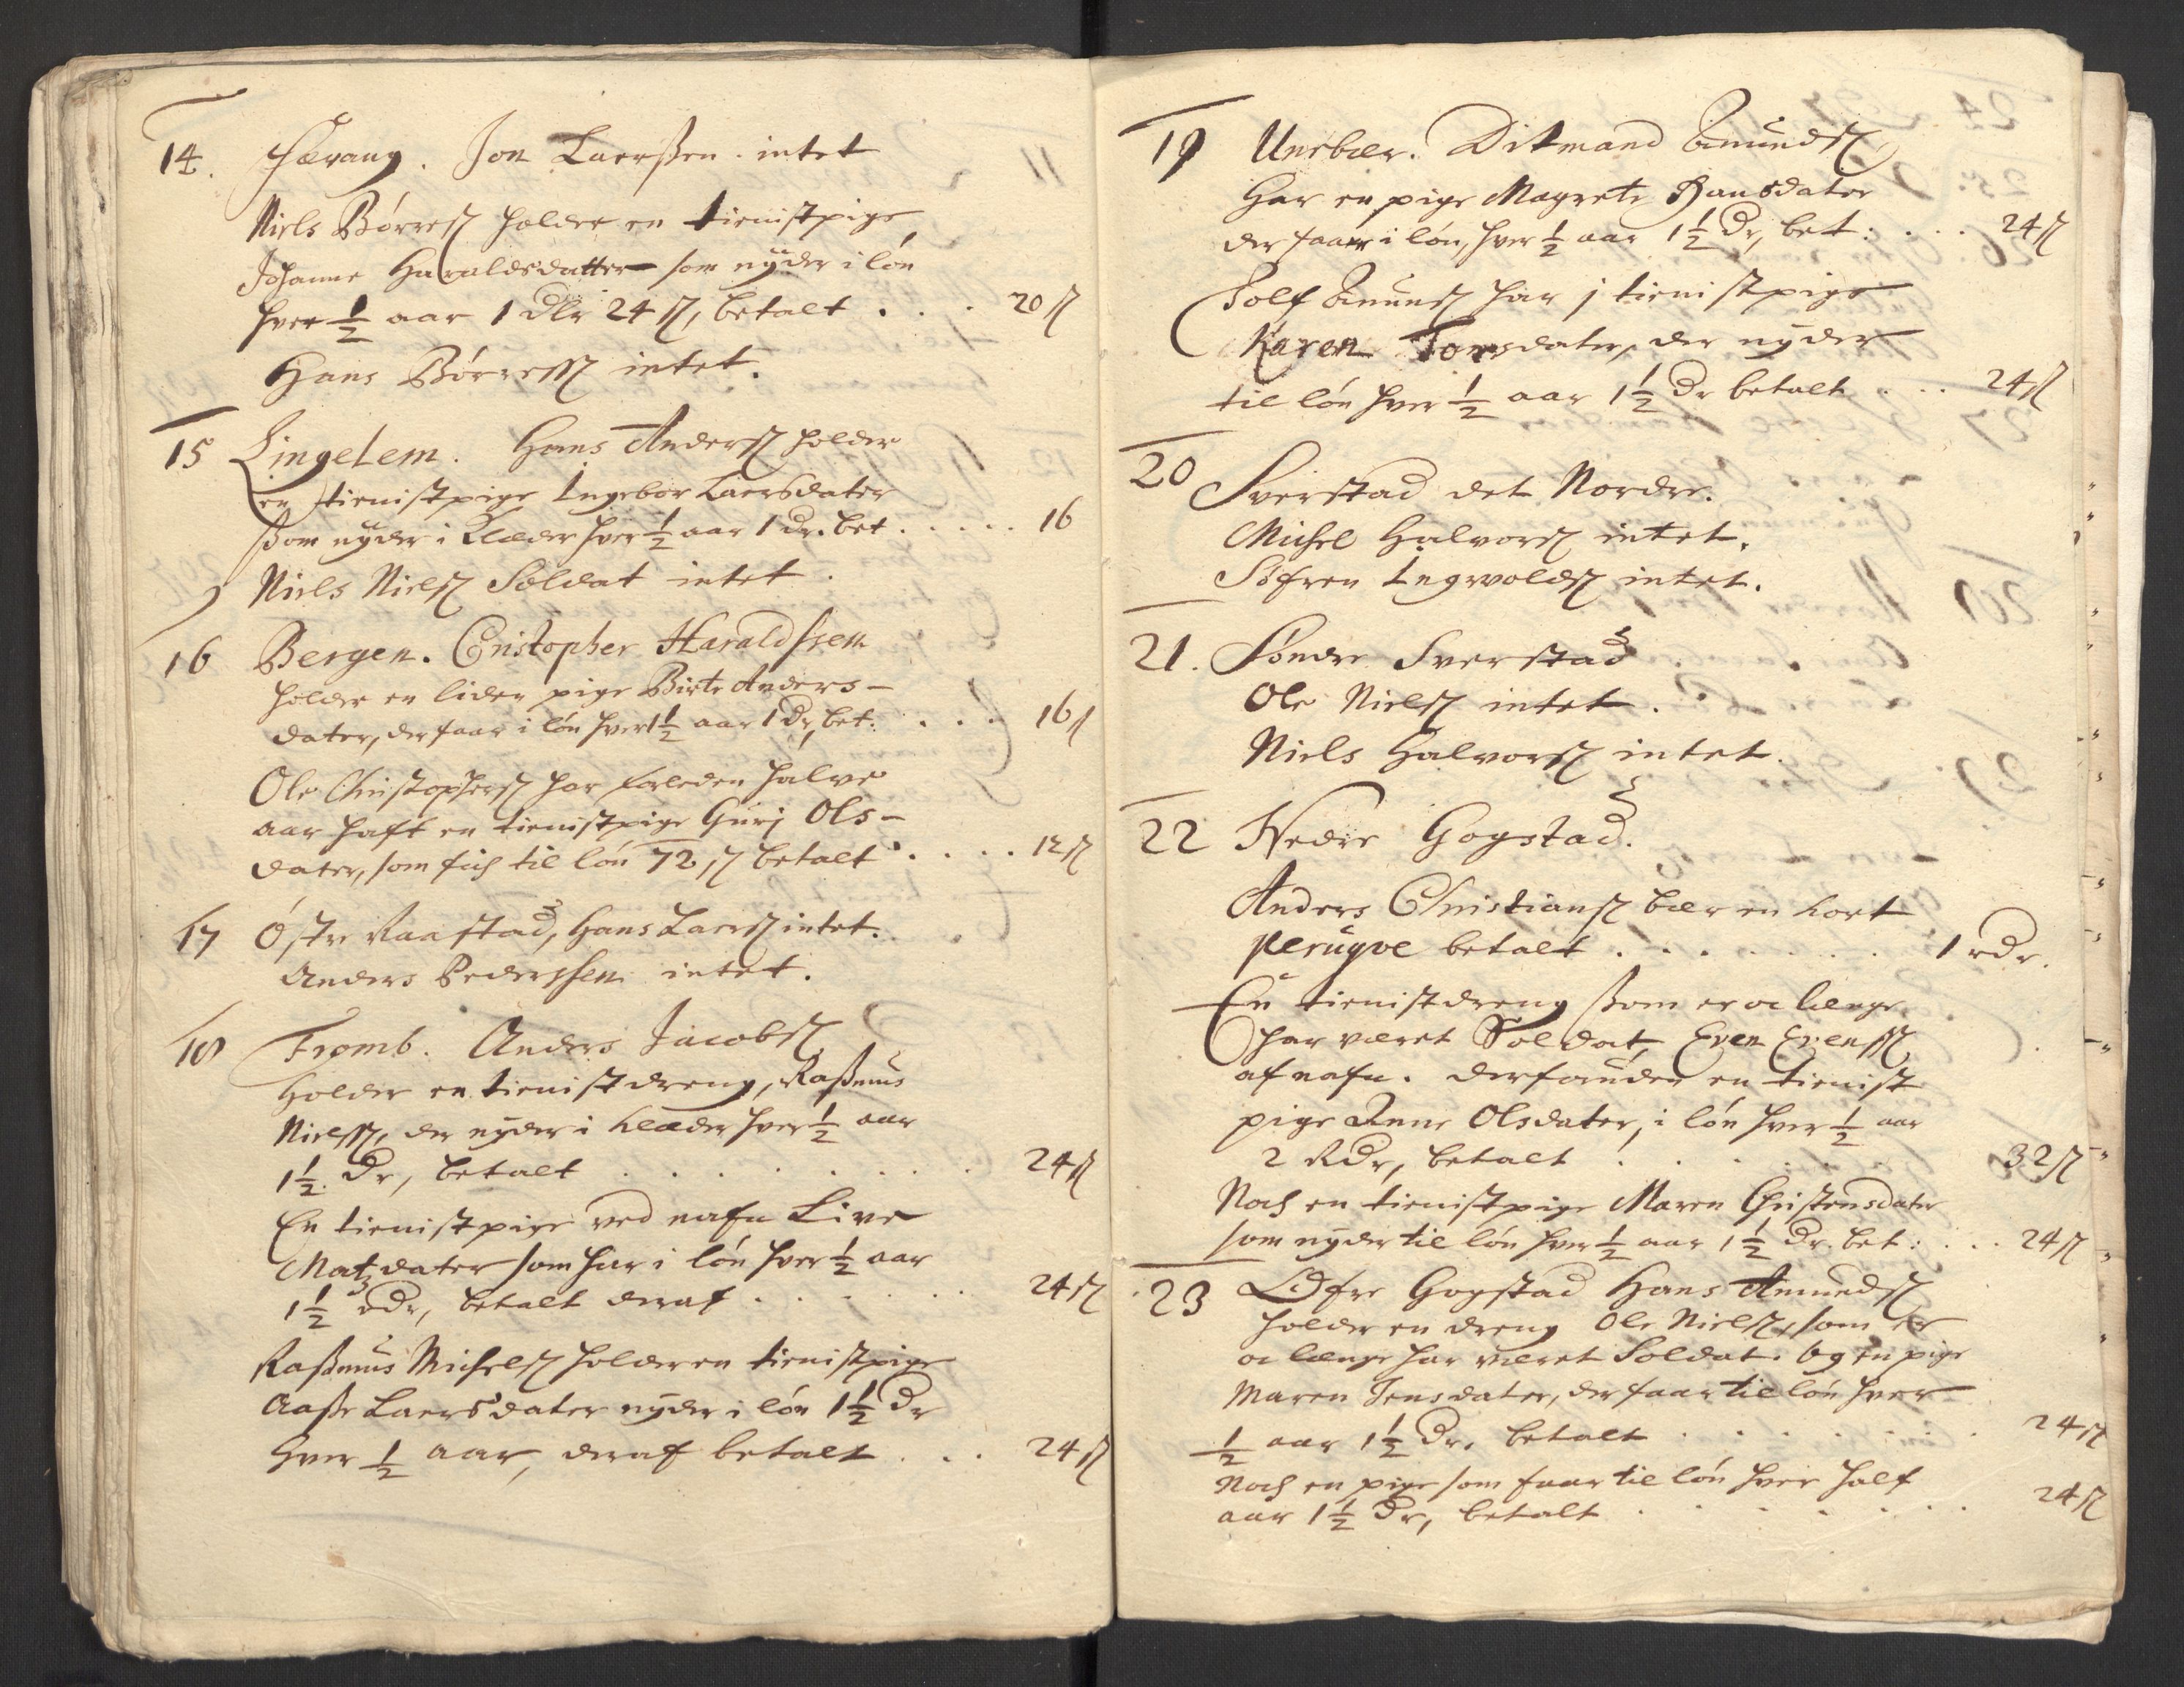 14. Hævang. Jon Laerssen. intet
Niels Børres holder en tienistpige
Johanne Haraldsdatter som nyder i løn
hver ½ aar 1 dlr 24 s, betalt . . . 20 s
Hans Børress intet.
15 Lingelem. Hans Anders holder
en tienistpige Ingebor Laersdater
som nyder i Klæder hver ½ aar 1 dr. bet . . . . . 16
Niels Niels Soldat intet.
16 Bergen. Cristopher Haraldssen
holder en liden pige Birte Anders-
dater, der faar i løn hver ½ aar 1 dr, bet: . . . 16 s
Ole Christophers har forleden halve
aar haft en tienistpige Guri Ols-
dater, som fich til løn 72 s betalt . . . . 12 s
17 Østre Raastad, Hans Laers intet.
Anders Pederssen intet.
18 Fromb. Anders Jacobs
holder en tienistdreng, Rasmus
Nielss, der nyder i klæder hver ½ aar
1½ dr, betalt . . . . . . . 24 s
En tienistpige ved nafn Live
Matzdater som har i løn hver ½ aar
1½ rdr, betalt deraf . . . . . . 24 s
Rasmus Michels holder en tienistpige
Aasse Laersdater nyder i løn 1½ dr
hver ½ aar, deraf betalt . . . 24 s
19 Unebær. Ditmand Amunds
har en pige Magrete Hansdater
der faar i løn, hver ½ aar 1½ dr, bet: . . . 24 s
Rolf Amuns har j tienistpige
Karen Torsdater, der nyder
til løn hver ½ aar 1½ dr betalt . . . 24 s
20 Sverstad det Nordre.
Michel Halvors intet.
Søfren Ingvolds intet.
21. Søndre Sverstad
Ole Niels intet.
Niels Halvors intet.
22 Nedre Gogstad.
Anders Christians bær en kort
perugve betalt . . . . . . . 1 rdr.
En tienistdreng som er oc længe
har været Soldat, Even Evenss
af nafn. derforuden en tienist
pige Anne Olsdater, i løn hver ½ aar
2 Rdr, betalt . . . . . 32 s
Noch en tienistpige Maren Christensdater
som nyder til løn hver ½ aar 1½ dr. bet: . . . 24 s
23 Øfre Gogstad Hans Amunds
holder en dreng Ole Niels, som er
oc længe har været Soldat. og en pige
Maren Jensdater, der faar til løn hver
½ aar 1½ dr. betalt . . . . . . . 24 s
Noch en pige som faar til løn hver half
aar 1½ dr, betalt . . . . . . 24 s